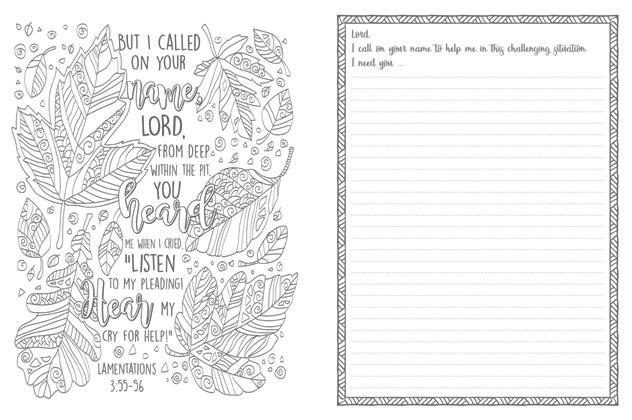 BUT I CALLED
ON YOUR
name,
LORD,
FROM DEEP
WITHIN THE PIT.
YOU
heard
ME WHEN I CRIED,
"LISTEN
TO MY PLEADING!
Hear MY
CRY FOR HELP!"
LAMENTATIONS
3:55-56
Lord,
I call on your name to help me in this challenging situation.
I need you ...